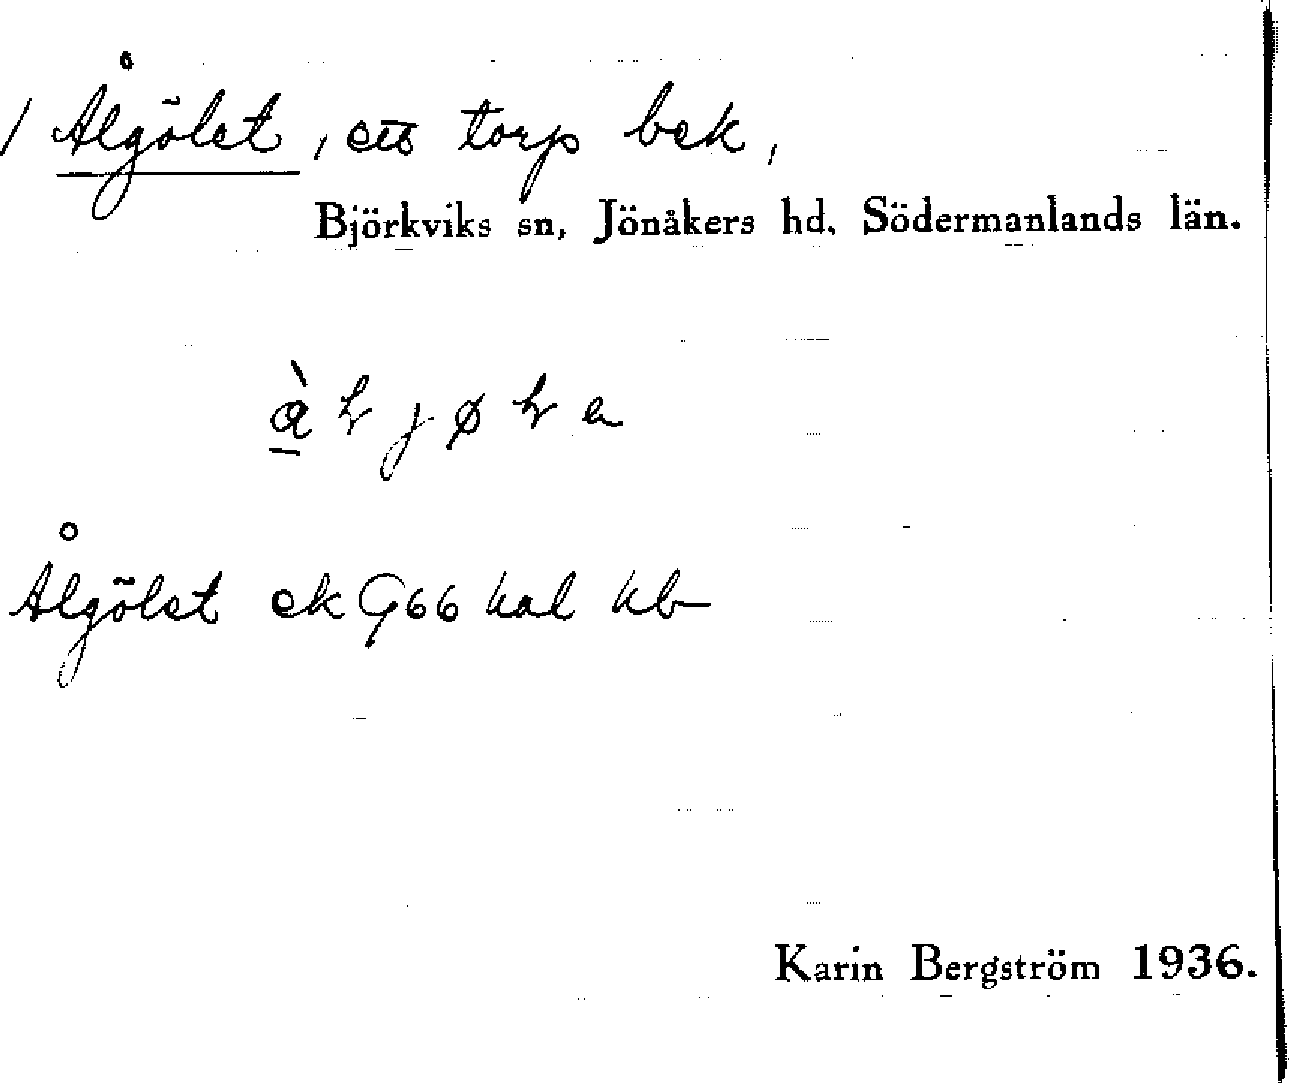 / Ålgölet, ett torp bek,
Björkviks sn, Jönåkers hd, Södermanlands län.
Ålgölet ek G66 hal kb
Karin Bergström 1936.